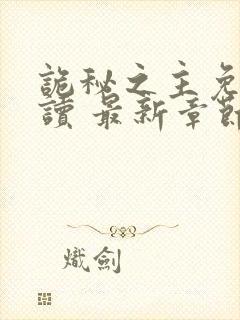 詭秘之主免
讀 最新章節
熾劍